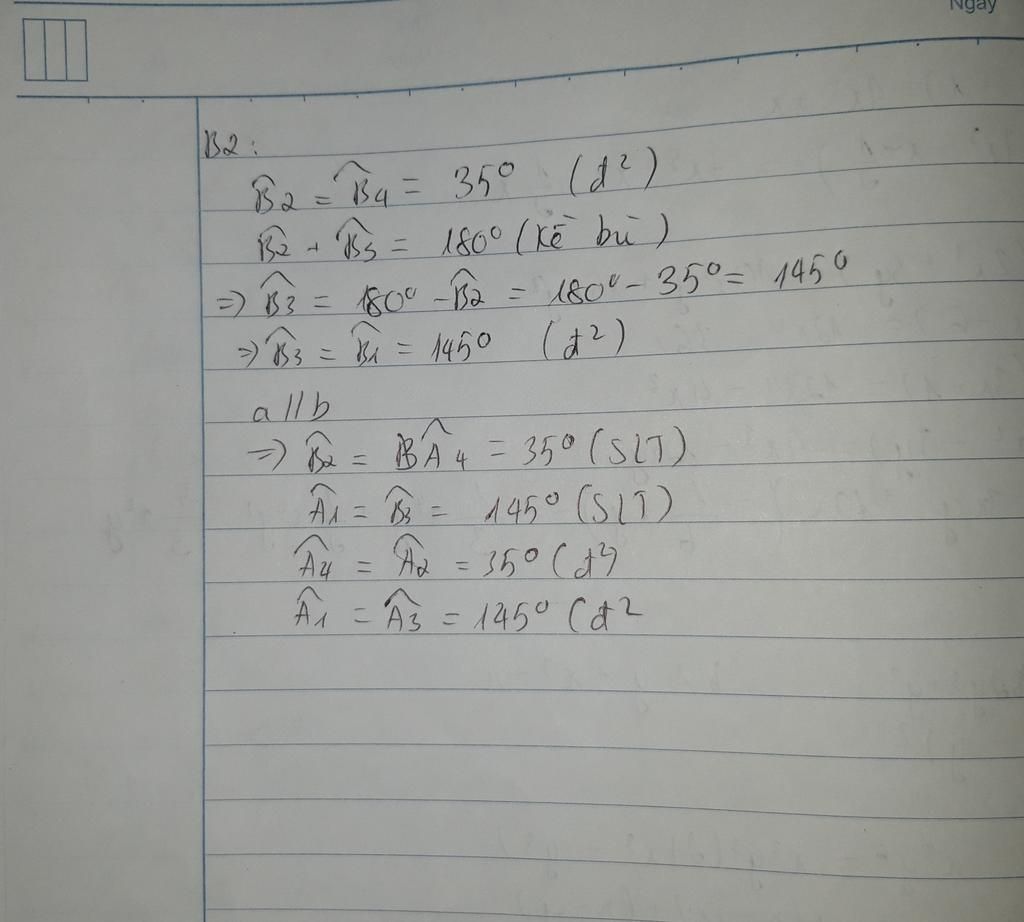 Ngày
B2:
B̂2 = B̂4 = 35° (đ²)
B̂2 + B̂3 = 180° (kề bù)
=> B̂3 = 180° - B̂2 = 180° - 35° = 145°
=> B̂3 = B̂1 = 145° (đ²)
a // b
=> B̂2 = Â4 = 35° (SLT)
Â1 = B̂3 = 145° (SLT)
Â4 = Â2 = 35° (đ²)
Â1 = Â3 = 145° (đ²